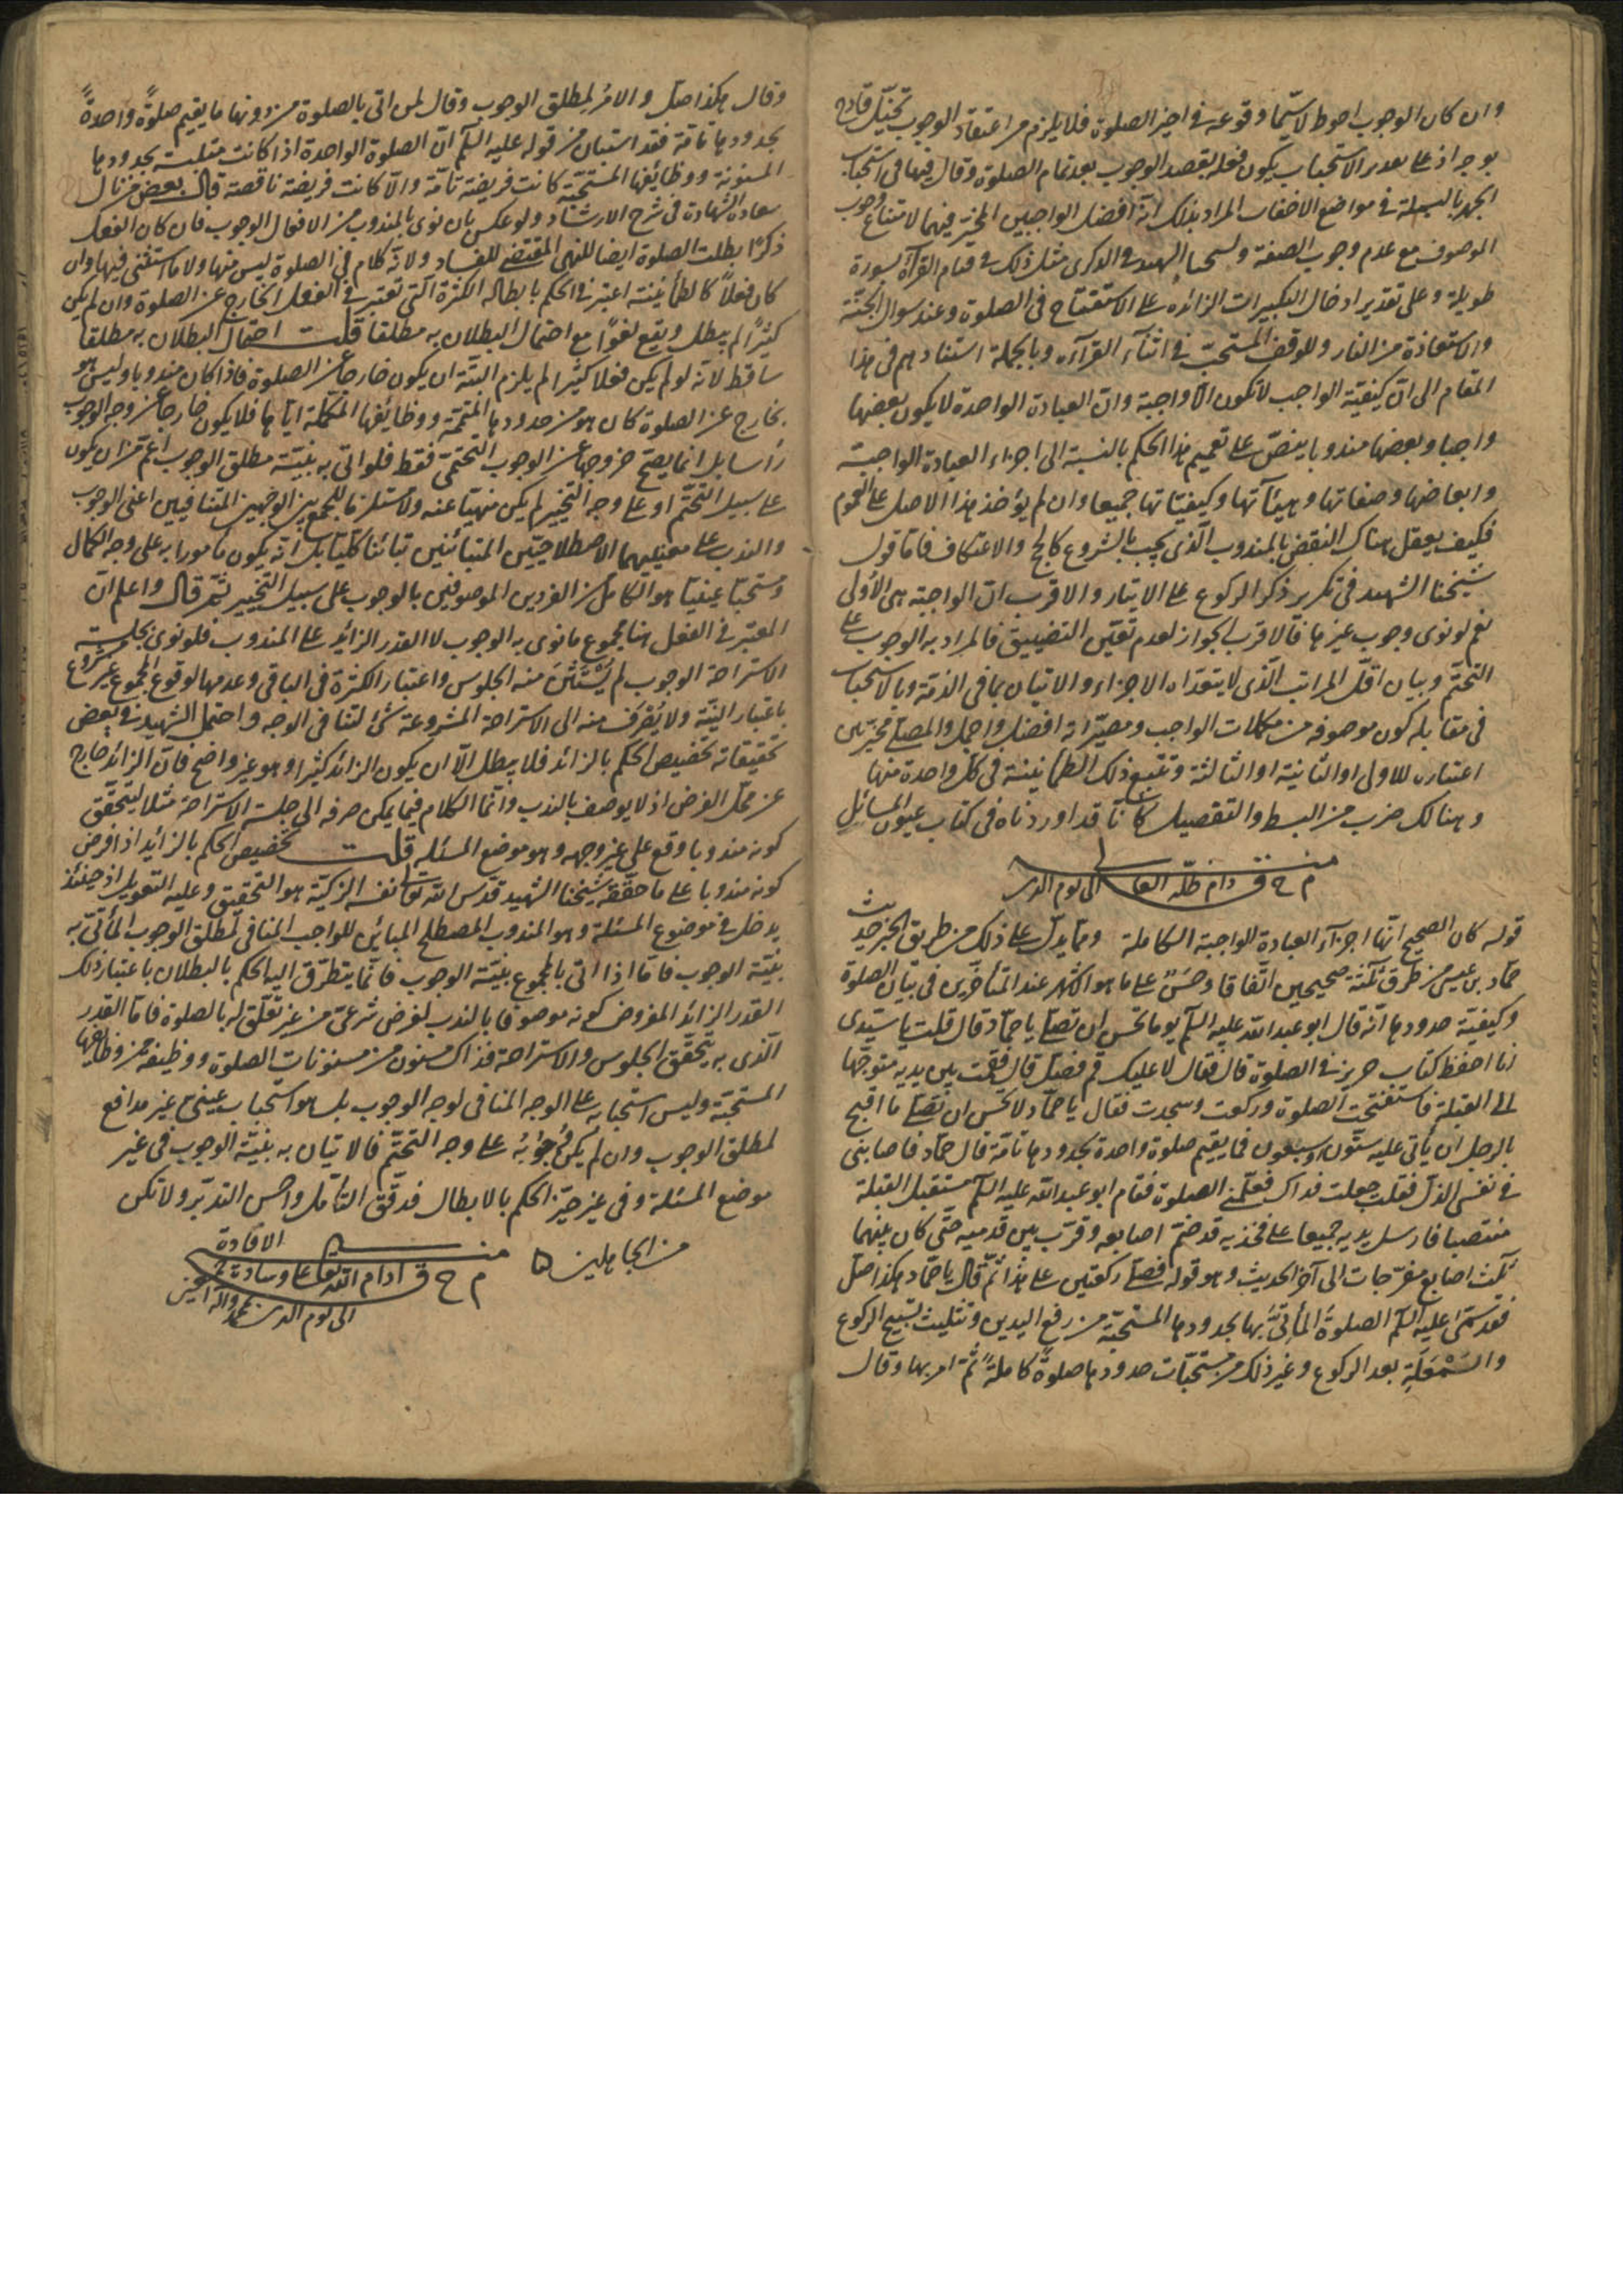 وان كان الوجوب احوط لاسيّما وقوعه في اخير الصلوة فلا يلزم من اعتقاد الوجوب تخيّل قادح
بوجه اذ على تقدير الاستحباب يكون فعله بقصد الوجوب بعد تمام الصلوة وقال فيها في استحباب
الجهر بالبسملة في مواضع الاخفات المراد بذلك انّه افضل الواجبين المخيّر فيهما لامتناع وجوب
الموصوف مع عدم وجوب الصفة ولشيخنا الشهيد في الذكرى مثل ذلك في قيام القرآءة بسورة
طويلة وعلى تقدير ادخال التكبيرات الزائده على الاستفتاح في الصلوة وعند سوال الجنّة
والاستعاذة من النار وللوقف المستحبّ في اثنآء القرآءه وبالجملة استنادهم في هذا
المقام الى انّ كيفيّة الواجب لا تكون الّا واجبة وانّ العبادة الواحدة لا يكون بعضها
واجبا وبعضها مندوبا ينصّ على تعميم هذا الحكم بالنسبة الى اجزاء العبادة الواجبة
وابعاضها وصفاتها وهيئآتها وكيفيّاتها جميعا وان لم يؤخذ هذا الاصل على العموم
فكيف يعقل هناك النقض بالمندوب الّذي يجب بالشروع كالحج والاعتكاف فامّا قول
شيخنا الشهيد في تكرير ذكر الركوع على الايتار والاقرب انّ الواجبة هي الأولى
نعم لو نوى وجوب غيرها فالاقرب الجواز لعدم تعيّن التضييق فالمراد به الوجوب على
التحتّم وبيان اقلّ المراتب الّذي لا يتعدّاه الاجزاء والاتيان بما في الذمّة وبالاستحباب
في مقابله كون موصوفه من مكملات الواجب ومصيّرا انّه افضل واجمل والمصلّي مخيّر بين
اعتباره للاولى او الثانية او الثالثة وتتبع ذلك الطمأنينة في كلّ واحدة منها
وهنالك ضرب من البسط والتفصيل كنّا قد اوردناه في كتاب عيون المسائل
منه
م ح ق دام ظلّه العالى الى يوم الدين
قوله كان الصحيح انّها اجزآء العبادة الواجبة الكاملة وممّا يدلّ على ذلك من طريق الخبر حديث
حمّاد بن عيسى من طرق ثلثة صحيحين اتّفاقا وحسن على ما هو الاشهر عند المتأخّرين في بيان الصلوة
وكيفيّة حدودها انّه قال ابو عبد الله عليه السّلم يوما تحسن ان تصلّي يا حمّاد قال قلت يا سيّدي
انا احفظ كتاب حريز في الصلوة قال فقال لا عليك قم فصلّ قال فقمت بين يديه متوجّها
الى القبلة فاستفتحت الصلوة وركعت وسجدت فقال يا حمّاد لا تحسن ان تصلّي ما اقبح
بالرجل ان يأتي عليه ستّون او سبعون فما يقيم صلوة واحدة بحدودها تامّة قال حمّاد فاصابني
في نفسي الذلّ فقلت جعلت فداك فعلّمني الصلوة فقام ابو عبد الله عليه السّلم مستقبل القبلة
منتصبا فارسل يديه جميعا على فخذيه قد ضمّ اصابعه وقرّب بين قدميه حتّى كان بينهما
ثلث اصابع مفرّجات الى آخر الحديث وهو قوله فصلّى ركعتين على هذا ثمّ قال يا حمّاد هكذا صلّ
فقد سمّى عليه السّلم الصلوة المأتيّ بها بحدودها المستحبّة من رفع اليدين وتثليث تسبيح الركوع
والسّمعلة بعد الركوع وغير ذلك من مستحبّات حدودها صلوةً كاملةً ثمّ امر بها وقال
وقال هكذا صلّ والامر لمطلق الوجوب وقال لمن اتى بالصلوة من دونها ما يقيم صلوةً واحدةً
بحدودها تامّة فقد استبان من قوله عليه السّلم انّ الصلوة الواحدة اذا كانت متلبّسة بحدودها
المسنونة ووظائفها المستحبّة كانت فريضة تامّة والّا كانت فريضة ناقصة قال بعض من نال
سعادة الشهادة في شرح الارشاد ولو عكس بان نوى بالمندوب من الافعال الوجوب فان كان الفعل
ذكرًا بطلت الصلوة ايضا للنهي المقتضي للفساد ولانّه كلام في الصلوة ليس منها ولا ما استثنى فيها وان
كان فعلًا كالطمأنينة اعتبر في الحكم بابطاله الكثرة الّتي تعتبر في الفعل الخارج عن الصلوة وان لم يكن
كثيرًا لم يبطل ويقع لغوًا مع احتمال البطلان به مطلقا قلت احتمال البطلان به مطلقا
ساقط لانّه لو لم يكن فعلا كثيرا لم يلزم البتّة ان يكون خارجا عن الصلوة فاذا كان مندوبا وليس هو
بخارج عن الصلوة كان هو من حدودها المتمّمة ووظائفها المكمّلة ايّاها فلا يكون خارجا عن وجه الوجوب
رأسا بل انما يصحّ خروجها عن الوجوب التحتّمي فقط فلو اتى به بنيّة مطلق الوجوب اعمّ من ان يكون
على سبيل التحتّم او على وجه التخيير لم يكن منهيّا عنه ولا مستلزما للجمع بين الوجهين المتنافيين اعني الوجوب
والندب على معنييهما الاصطلاحيّين المتباينين تباينا كلّيا بل انّه يكون مأمورا به على وجه الكمال
ومستحبّا عينيّا هو الكامل من الفردين الموصوفين بالوجوب على سبيل التخيير ثمّ قال واعلم انّ
المعتبر في الفعل هنا مجموع ما نوى به الوجوب لا القدر الزائد على المندوب فلو نوى بجلسة
الاستراحة الوجوب لم يُستثنَ منه الجلوس واعتبار الكثرة في الباقي وعدمها لوقوع المجموع غير مشروع
باعتبار النيّة ولا يُصرف منه الى الاستراحة المشروعة شئ لتنافي الوجه واحتمل الشهيد في بعض
تحقيقاته تخصيص الحكم بالزائد فلا يبطل الّا ان يكون الزائد كثيرا وهو غير واضح فانّ الزائد خارج
عن محلّ الفرض اذ لا يوصف بالندب وانّما الكلام فيما يمكن صرفه الى جلسة الاستراحة مثلا ليتحقّق
كونه مندوبا وقع على غير وجهه وهو موضع المسئله قلت تخصيص الحكم بالزايد اذا فرض
كونه مندوبا على ما حقّقه شيخنا الشهيد قدّس الله تعالى نفسه الزكيّة هو التحقيق وعليه التعويل اذ حينئذ
يدخل في موضوع المسئلة وهو المندوب المصطلح المباين للواجب المنافي لمطلق الوجوب المأتيّ به
بنيّة الوجوب فامّا اذا اتى بالمجموع بنيّة الوجوب فانّما يتطرّق اليه الحكم بالبطلان باعتبار ذلك
القدر الزائد المفروض كونه موصوفا بالندب لغرض شرعيّ من غير تعلّق له بالصلوة فامّا القدر
الّذي به يتحقّق الجلوس والاستراحة فذاك مسنون من مسنونات الصلوة ووظيفة من وظايفها
المستحبّة وليس استحبابه على الوجه المنافي لوجه الوجوب بل هو استحباب عينيّ غير مدافع
لمطلق الوجوب وان لم يكن وجوبه على وجه التحتّم فالاتيان به بنيّة الوجوب في غير
موضع المسئلة وفي غير حيّز الحكم بالابطال فدقّق التأمّل واحسن التدبّر ولا تكن
من الجاهلين
منه
م ح ق ادام الله تعالى على وسادة الافادة
الى يوم الدين بمحمد وآله اجمعين